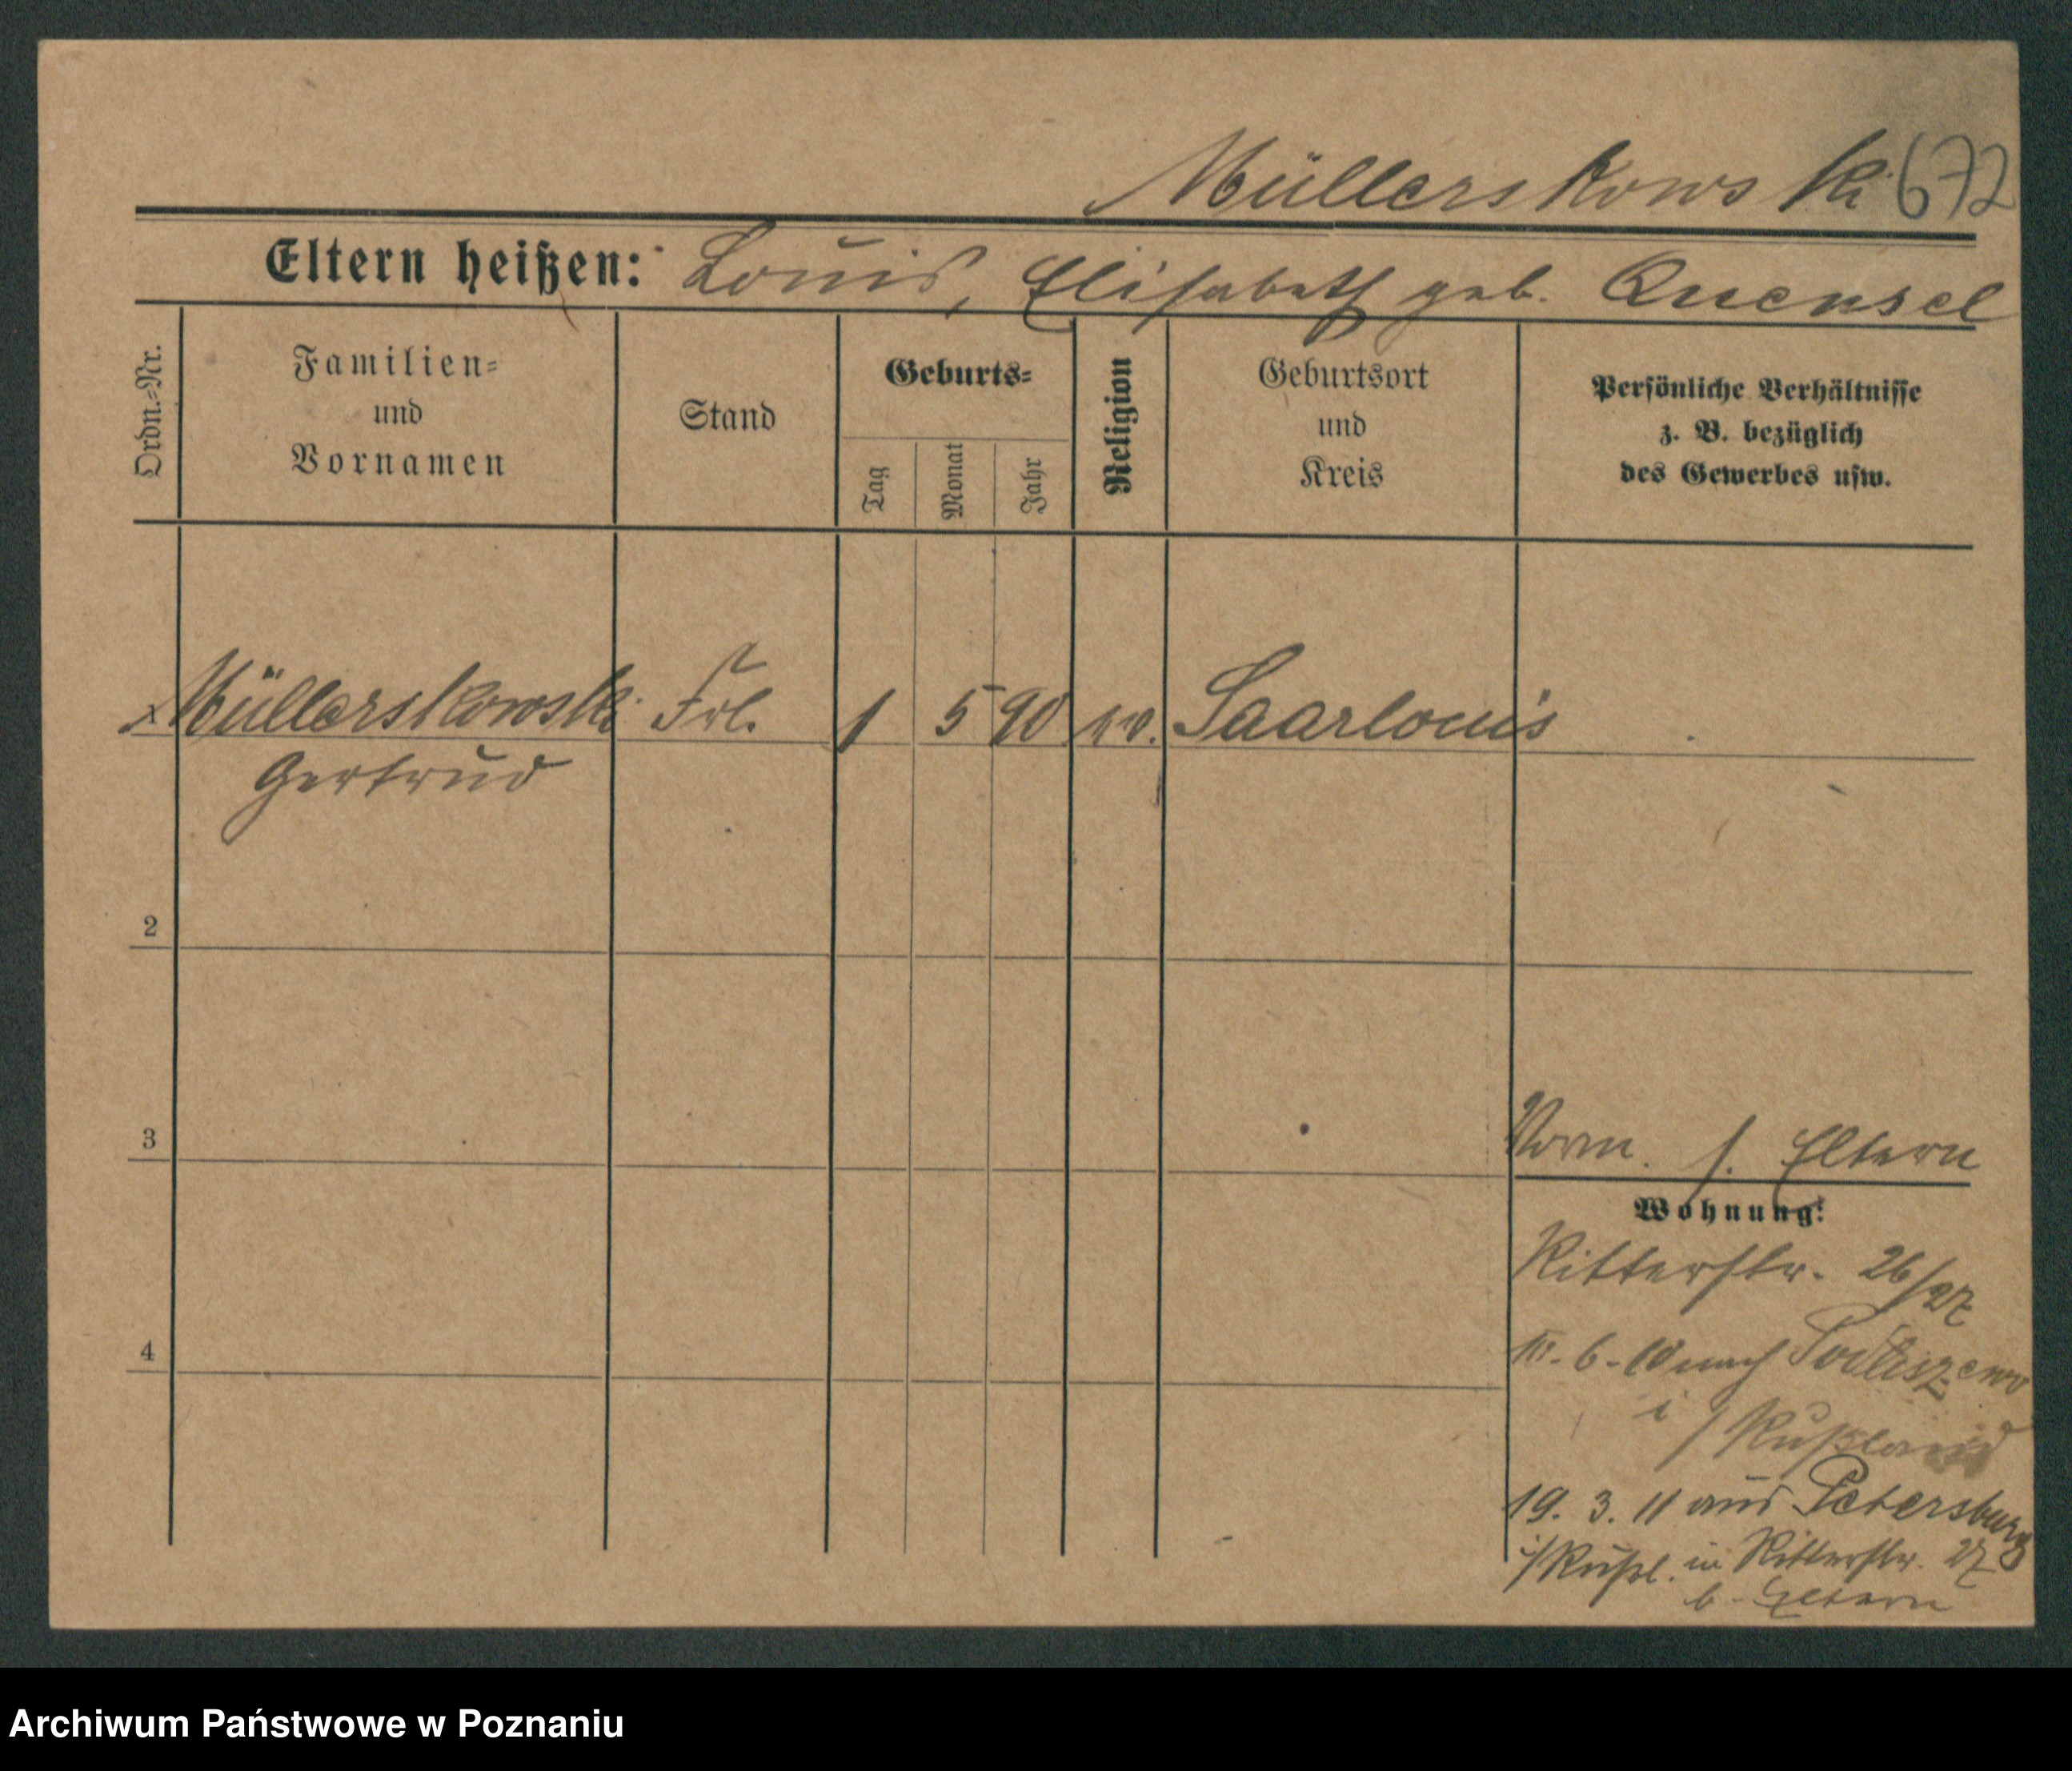 Müllerskowski 672
Eltern heißen: Louis, Elisabeth geb. Quensel
Ordn.-Nr.
Familien-
und
Vornamen
Stand
Geburts-
Tag
Monat
Jahr
Religion
Geburtsort
und
Kreis
Persönliche Verhältnisse
z. B. bezüglich
des Gewerbes usw.
1 Müllerskowski Frl. 1 5 90 ev. Saarlouis
Gertrud
2
3
Vorm. s. Eltern
Wohnung:
Ritterstr. 26/27
4
6-10 nach
i/Rußland
19. 3. 11 aus Petersburg
i/Rußl. in Ritterstr. 27
b. Eltern
Archiwum Państwowe w Poznaniu